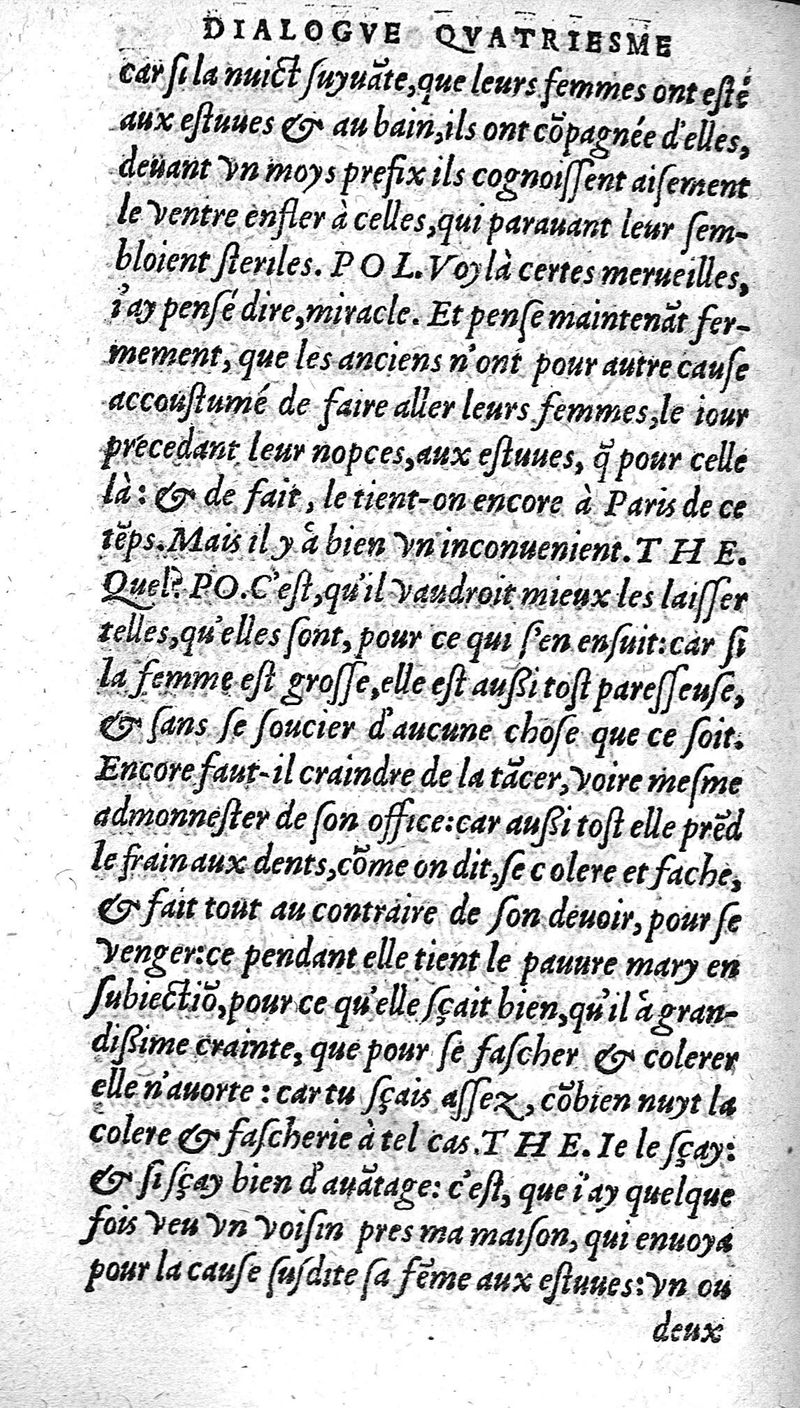 DIALOGVE QVATRIESME
car ſi la nuict ſuyuãte,que leurs femmes ont eſté
aux eſtuues & au bain,ils ont cõpagnée d'elles,
deuant vn moys prefix ils cognoiſſent aiſement
le ventre enfler à celles,qui parauant leur ſem-
bloient ſteriles. P O L. Voylà certes merueilles,
i'ay penſé dire,miracle. Et penſe maintenãt fer-
mement, que les anciens n'ont pour autre cauſe
accouſtumé de faire aller leurs femmes,le iour
precedant leur nopces,aux eſtuues, q̃ pour celle
là: & de fait, le tient-on encore à Paris de ce
tẽps. Mais il y à bien vn inconuenient. T H E.
Quel? PO. C'eſt,qu'il vaudroit mieux les laiſſer
telles,qu'elles ſont, pour ce qui ſ'en enſuit: car ſi
la femme eſt groſſe,elle eſt auſſi toſt pareſſeuſe,
& ſans ſe ſoucier d'aucune choſe que ce ſoit.
Encore faut-il craindre de la tãcer, voire meſme
admonneſter de ſon office: car auſſi toſt elle prẽd
le frain aux dents,cõme on dit,ſe c olere et fache,
& fait tout au contraire de ſon deuoir, pour ſe
venger: ce pendant elle tient le pauure mary en
ſubiectiõ,pour ce qu'elle ſçait bien,qu'il à gran-
diſſime crainte, que pour ſe faſcher & colerer
elle n'auorte : car tu ſçais aſſez, cõbien nuyt la
colere & faſcherie à tel cas. T H E. Ie le ſçay:
& ſi ſçay bien d'auãtage: c'eſt, que i'ay quelque
fois veu vn voiſin pres ma maiſon, qui enuoya
pour la cauſe ſuſdite ſa fẽme aux eſtuues: vn ou
deux